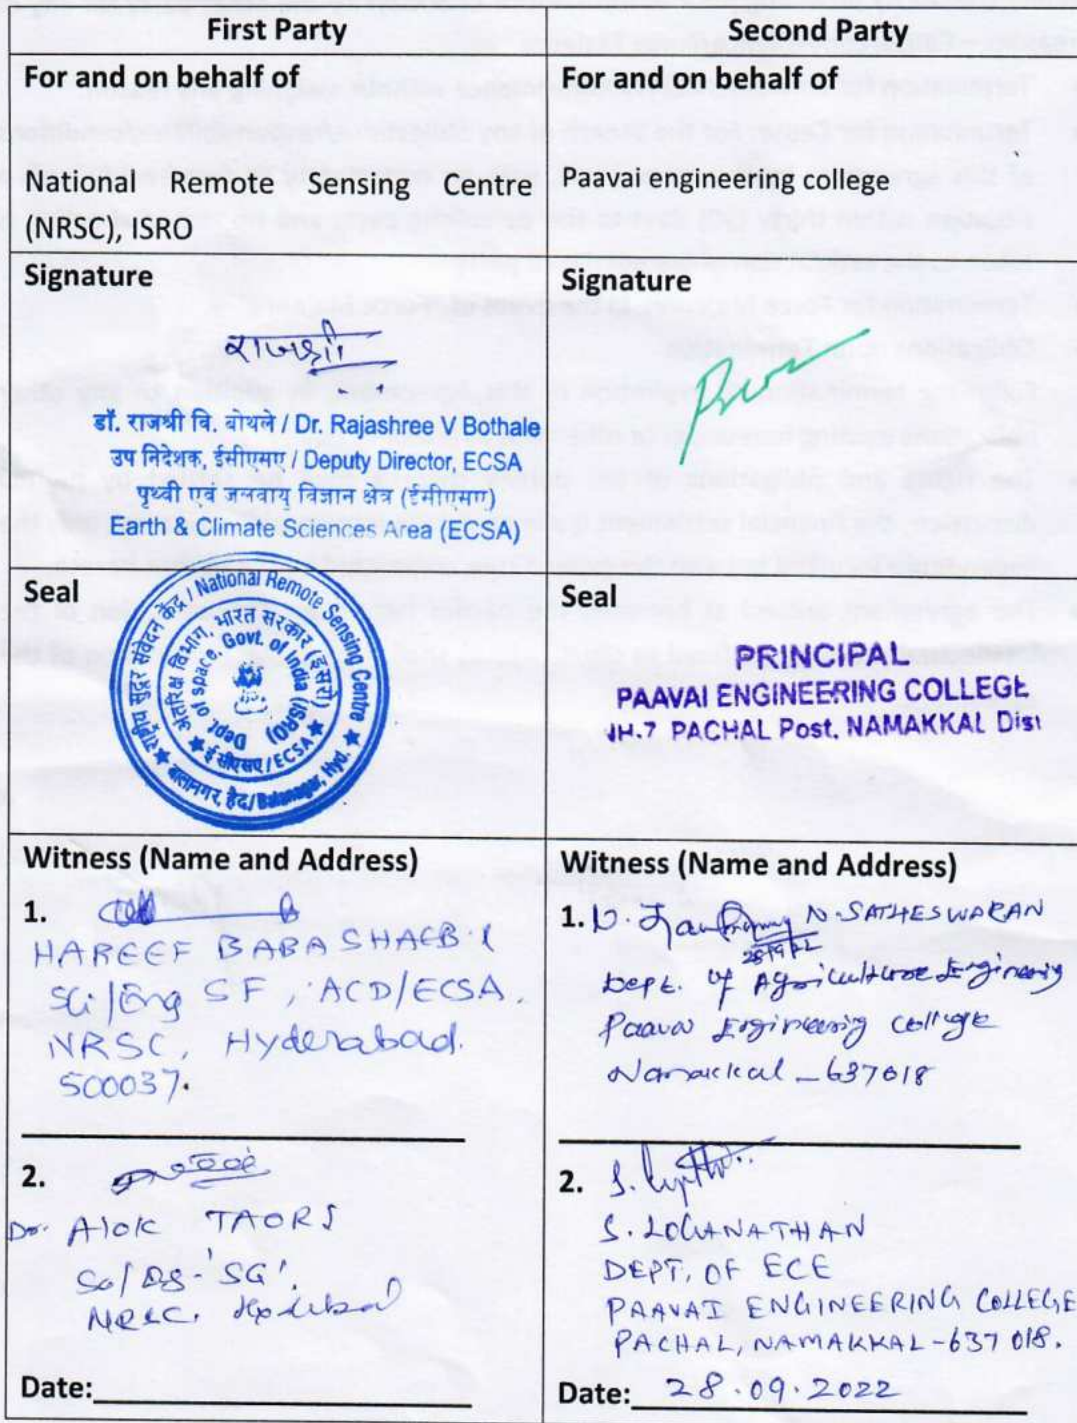 First Party
Second Party
For and on behalf of
National Remote Sensing Centre
(NRSC), ISRO
For and on behalf of
Paavai engineering college
Signature
राजश्री
डॉ. राजश्री वि. बोथले / Dr. Rajashree V Bothale
उप निदेशक, ईसीएसए / Deputy Director, ECSA
पृथ्वी एवं जलवायु विज्ञान क्षेत्र (ईसीएसए)
Earth & Climate Sciences Area (ECSA)
Signature
Seal
राष्ट्रीय सुदूर संवेदन केंद्र / National Remote Sensing Centre
बालानगर, हैद/Balanagar, Hyd.
अंतरिक्ष विभाग, भारत सरकार (इसरो)
ईसीएसए/ECSA
Dept. of space, Govt. of India (ISRO)
Seal
PRINCIPAL
PAAVAI ENGINEERING COLLEGE
NH-7 PACHAL Post, NAMAKKAL Dist
Witness (Name and Address)
1.
HAREEF BABA SHAEB
Sci/Eng SF, ACD/ECSA,
NRSC, Hyderabad.
500037.
2.
Dr. Alok TAORI
NRSC,
Date:
Witness (Name and Address)
1. N. SATHESWARAN
Dept. of Agriculture Engineering
Paavai Engineering College
Namakkal - 637018
2.
S. LOGANATHAN
DEPT. OF ECE
PAAVAI ENGINEERING COLLEGE
PACHAL, NAMAKKAL-637 018.
Date: 28.09.2022